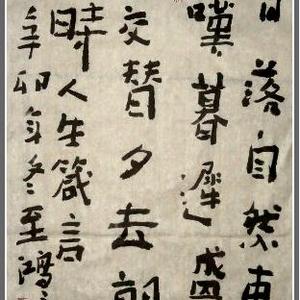 落自然
嘆暮遲成四
交替夕去
時人生箴言
辛卯年冬至鴻